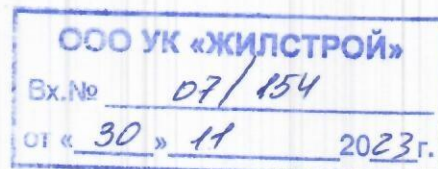 ООО УК «ЖИЛСТРОЙ»
Вх.№ 07/154
от « 30 » 11 2023 г.